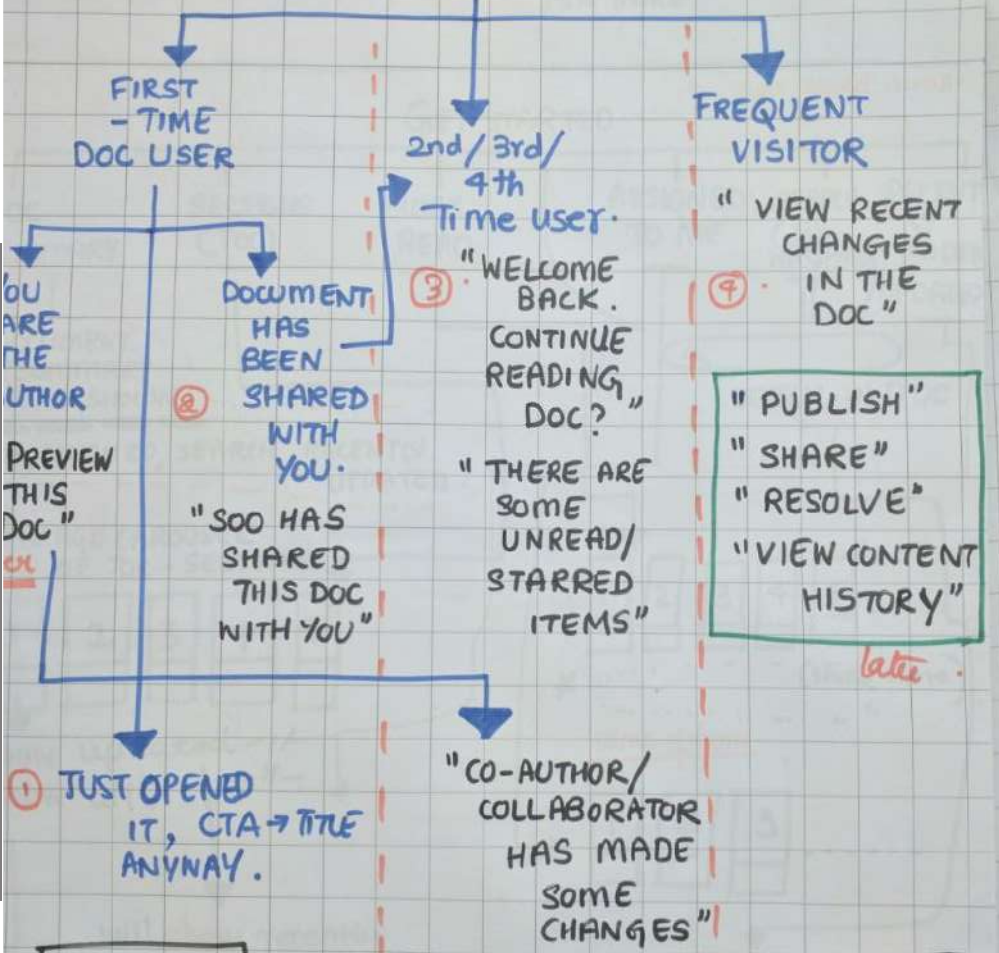 FIRST
- TIME
DOC USER
YOU
ARE
THE
AUTHOR
PREVIEW
THIS
DOC"
② DOCUMENT
HAS
BEEN
SHARED
WITH
YOU.
"SOO HAS
SHARED
THIS DOC
WITH YOU"
① JUST OPENED
IT, CTA → TITLE
ANYNAY.
2nd/3rd/
4th
Time user.
③ . "WELCOME
BACK.
CONTINUE
READING
DOC?"
"THERE ARE
SOME
UNREAD/
STARRED
ITEMS"
"CO-AUTHOR/
COLLABORATOR
HAS MADE
SOME
CHANGES"
FREQUENT
VISITOR
④ . "VIEW RECENT
CHANGES
IN THE
DOC"
"PUBLISH"
"SHARE"
"RESOLVE"
"VIEW CONTENT
HISTORY"
later.